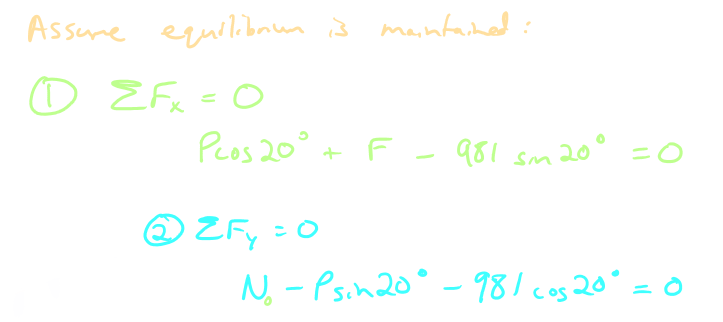 Assume equilibrium is maintained:
① ΣFx = 0
Pcos20° + F - 981 sin20° = 0
② ΣFy = 0
N - Psin20° - 981 cos20° = 0